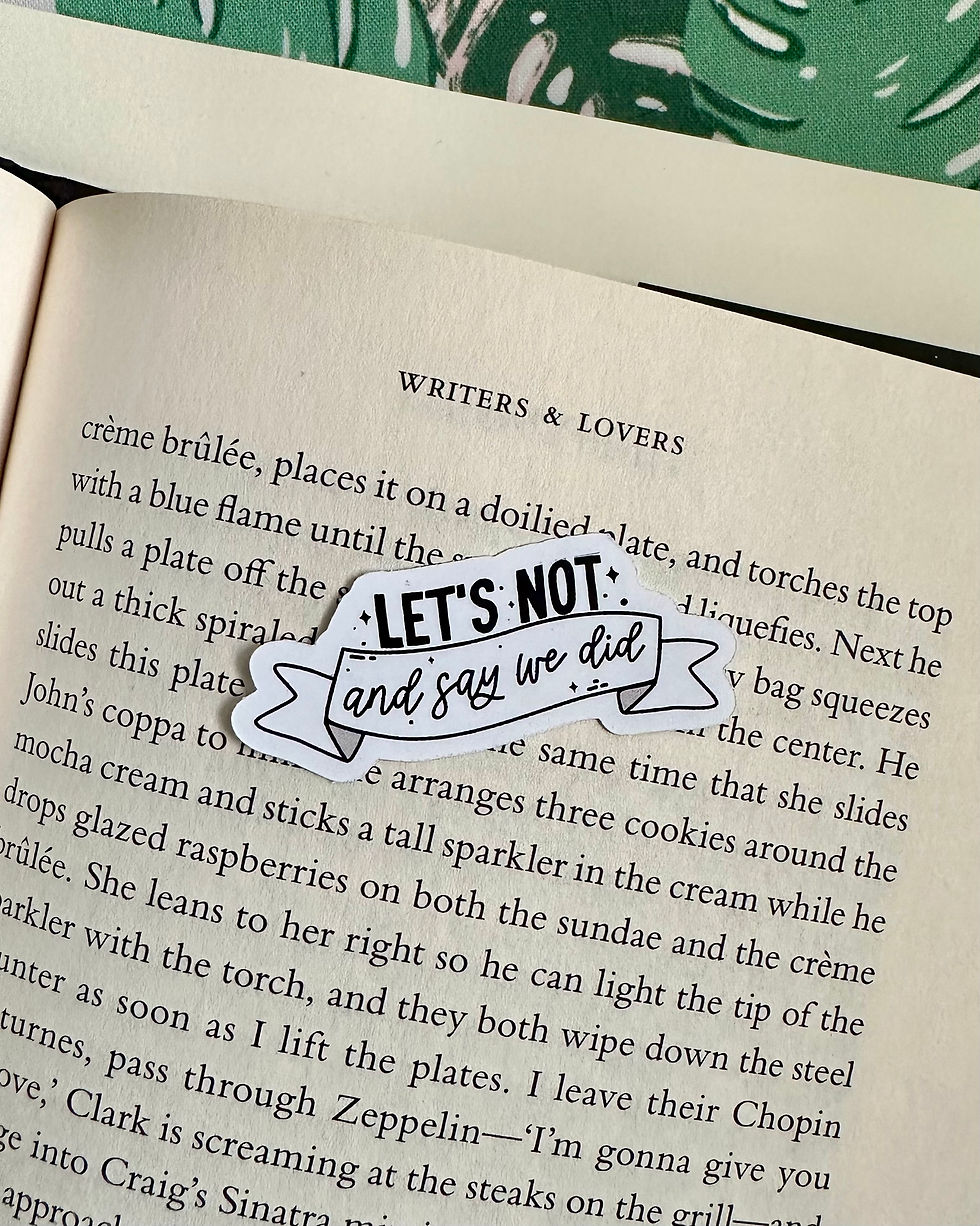 WRITERS & LOVERS
crème brûlée, places it on a doilied plate, and torches the top
with a blue flame until the liquefies. Next he
pulls a plate off the bag squeezes
out a thick spiraled the center. He
slides this plate same time that she slides
John's coppa to arranges three cookies around the
mocha cream and sticks a tall sparkler in the cream while he
drops glazed raspberries on both the sundae and the crème
brûlée. She leans to her right so he can light the tip of the
sparkler with the torch, and they both wipe down the steel
as soon as I lift the plates. I leave their Chopin
pass through Zeppelin—‘I'm gonna give you
Clark is screaming at the steaks on the grill—and
into Craig's Sinatra
LET'S NOT
and say we did